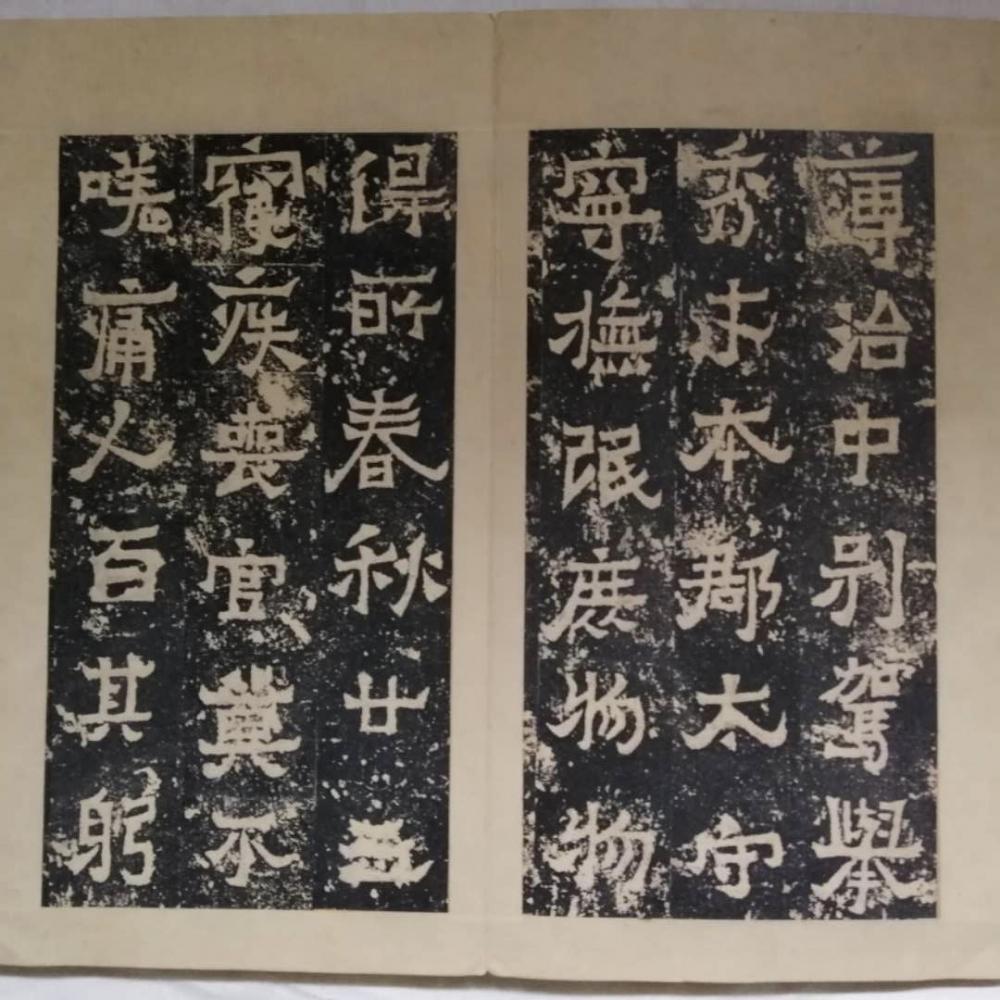 簿治中別駕舉
秀才本郡太守
寧撫氓庶物物
得所春秋廿
寑疾喪官莫不
嗟痛人百其躬